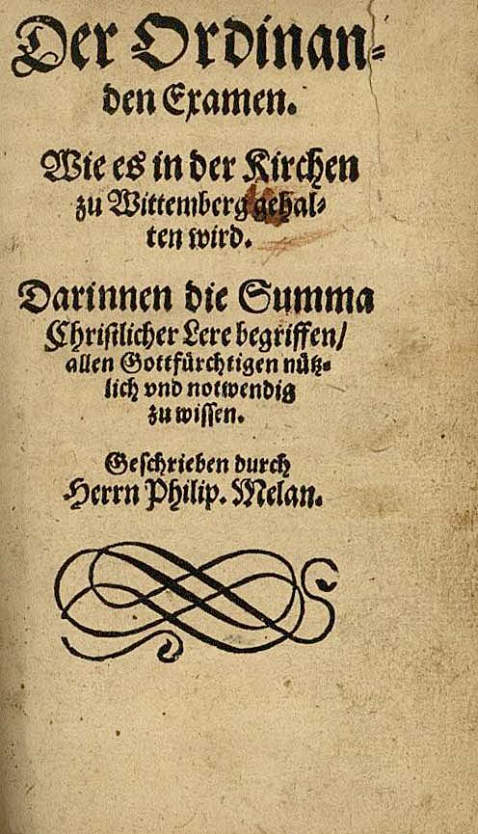 Der Ordinan-
den Examen.
Wie es in der Kirchen
zu Wittemberg gehal-
ten wird.
Darinnen die Summa
Christlicher Lere begriffen/
allen Gottfürchtigen nütz-
lich vnd notwendig
zu wissen.
Geschrieben durch
Herrn Philip. Melan.